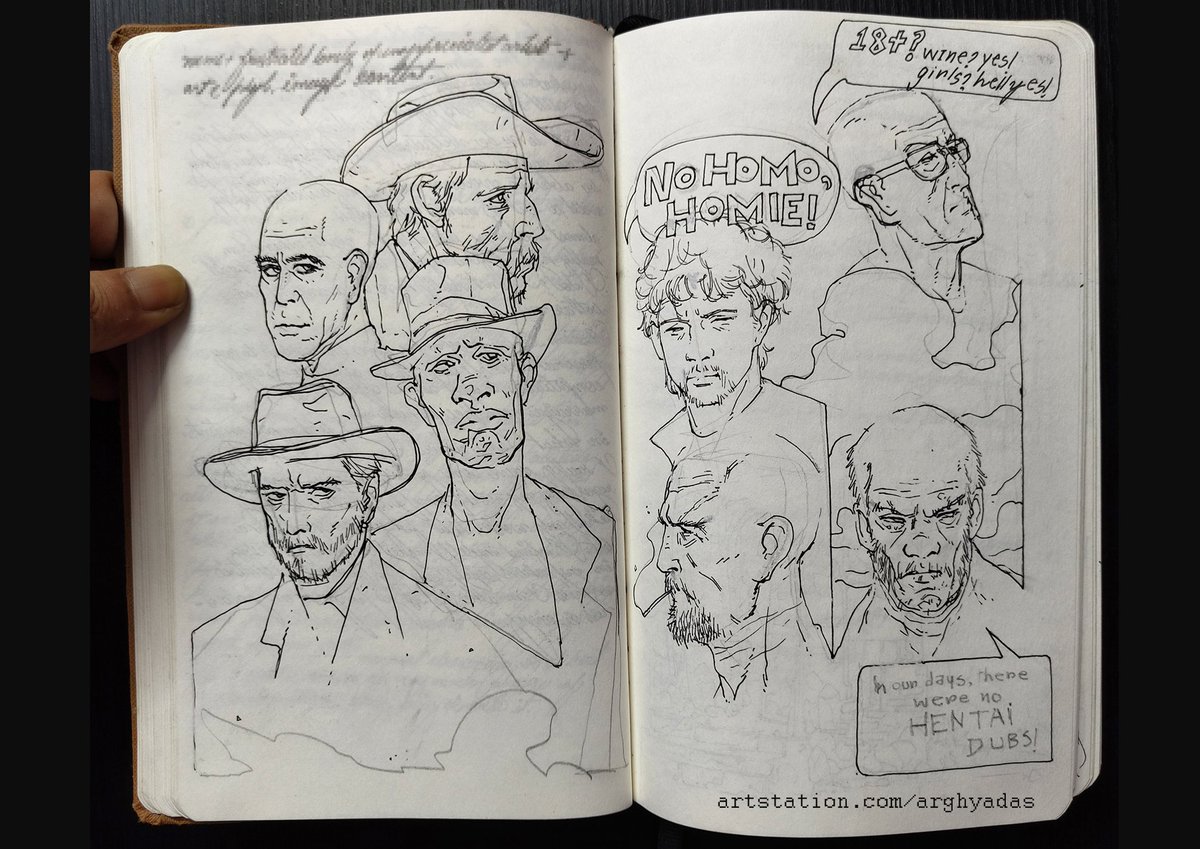 18+? wine? yes!
girls? hell yes!
NO HOMO,
HOMIE!
In our days, there
were no
HENTAI
DUBS!
artstation.com/arghyadas